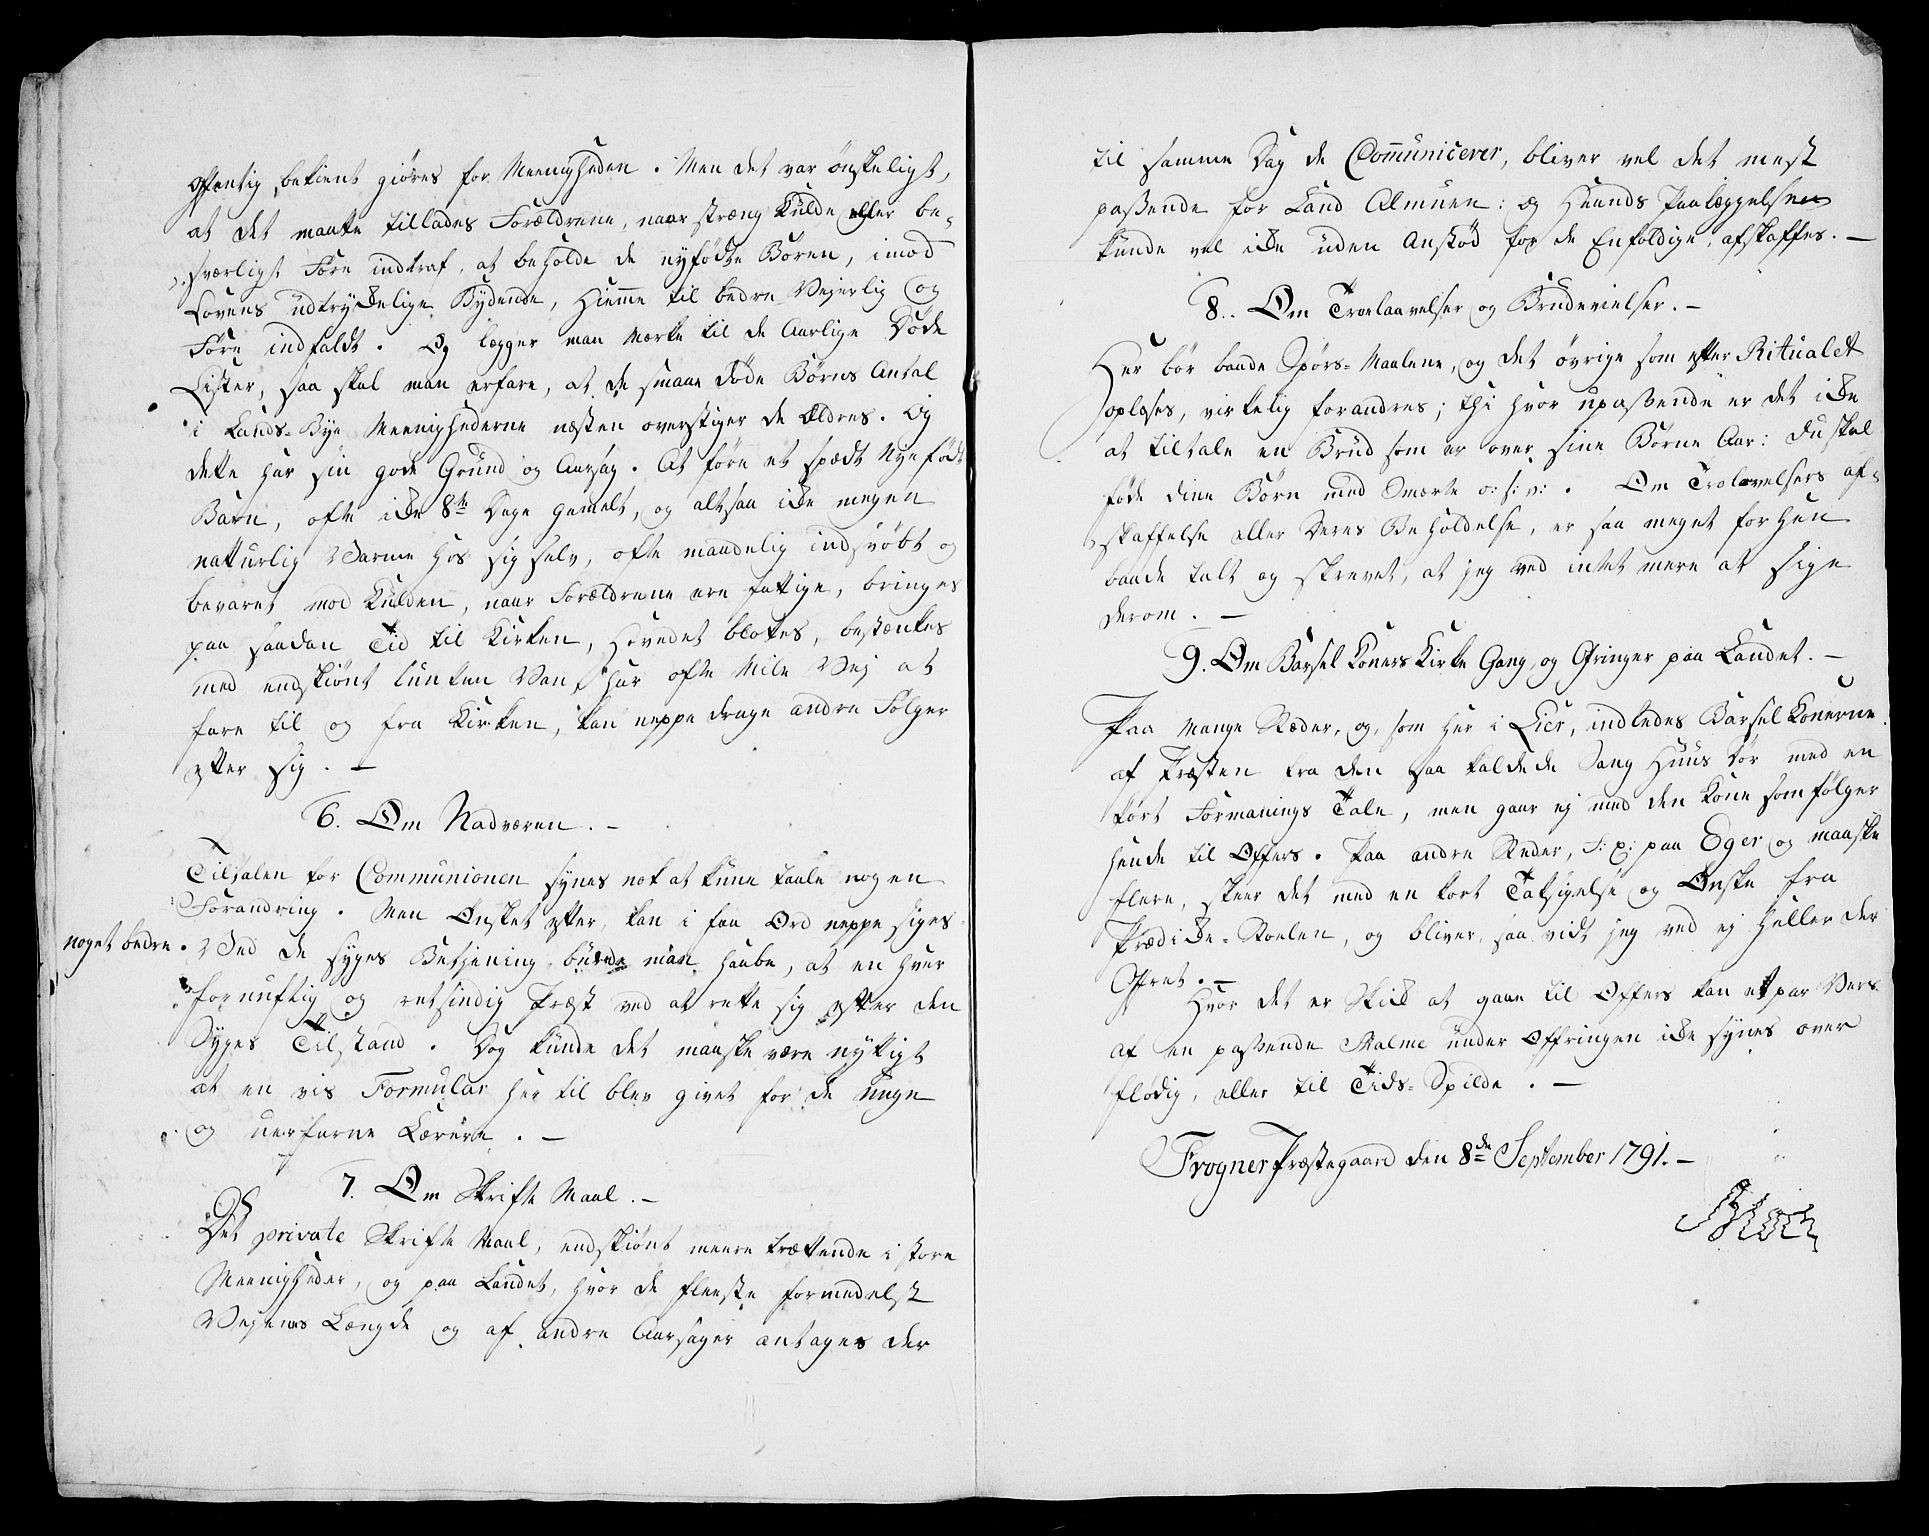 offentlig bekient giöres for Meenigheden. Men det var önskeligt,
at det maatte tillades Forældrene, naar stræng Kulde eller be-
sværligt Före indtraf, at beholde de nyfödte Börn, imod
Lovens udtrykkelige Bydende, hiemme til bedre Veyerlig og
Före indfaldt. Og lægger man Mærke til de Aarlige Döde
Lister, saa skal man erfare, at de smaae döde Börns Antal
i Lands-Bye Meenighederne næsten overstiger de Ældres. Og
dette har sin gode Grund og Aarsag. At före et spædt Nyefödt
Barn, ofte ikke 8te Dage gamelt, og altsaa ikke megen
naturlig Varme hos sig selv, ofte maadelig indsvöbt og
bevaret mod Kulden, naar Forældrene ere fattige, bringes
paa saadan Tid til Kirken, Hovedet blottes, bestænkes
med endskiönt lunken Van, har ofte Mile Vej at
fare til og fra Kirken, kan neppe drage andre Fölger
efter sig. —
6. Om Nadveren. —
Tiltalen for Communionen synes nok at kune taale nogen
Forandring. Men Önsket efter, kan i faa Ord neppe siges
noget bedre. Ved de syges Betjening burde man haabe, at en hver
fornuftig og retsindig Præst ved at rette sig efter den
Syges Tilstand. Dog kunde det maaske være nyttigt
at en vis Formular her til blev givet for de unge
og uerfarne Lærere. —
7. Om Skrifte Maal. —
Det private Skrifte Maal, endskiönt meere trættende i store
Meenigheder, og paa Landet, hvor de fleeste formedelst
Vejenes Længde og af andre Aarsager antages der
til samme Dag de Communicerer, bliver vel det mest
passende for Land Almuen: og Haands Paalæggelsen
kunde vel ikke uden Anstöd for de Enfoldige, afskaffes. —
8. Om Troelaavelser og Brudevielser. —
Her bör baade Spörs-Maalene, og det övrige som efter Ritualet
oplæses, virkelig forandres; thi hvor upassende er det ikke
at tiltale en Brud som er over sine Börne Aar: Du skal
föde dine Börn med Smerte o: s: v: . Om Trolovelsers af-
skaffelse eller Deres Beholdelse, er saa meget forhen
baade talt og skrevet, at jeg ved intet mere at sige
derom. —
9. Om Barsel Koners Kirke Gang, og Ofringer paa Landet. —
Paa mange Stæder, og, som her i Lier, indledes Barsel Konerne
af Præsten fra den saa kaldede Vaaben Huus Dör med en
kort Formanings Tale, men gaar ej med den Kone som fölger
hende til Offers. Paa andre Steder, f: x: paa Eger og maaske
flere, skeer det med en kort Taksigelse og Önske fra
Prædike-Stoelen, og bliver, saa vidt jeg ved ej heller der
Ofret. —
Hvor det er Skik at gaae til Offers kan et par Vers
af en passende Psalme under Offringen ikke synes over
flödig, eller til Tids-Spilde. —
Frogner Præstegaard den 8de September 1791. —